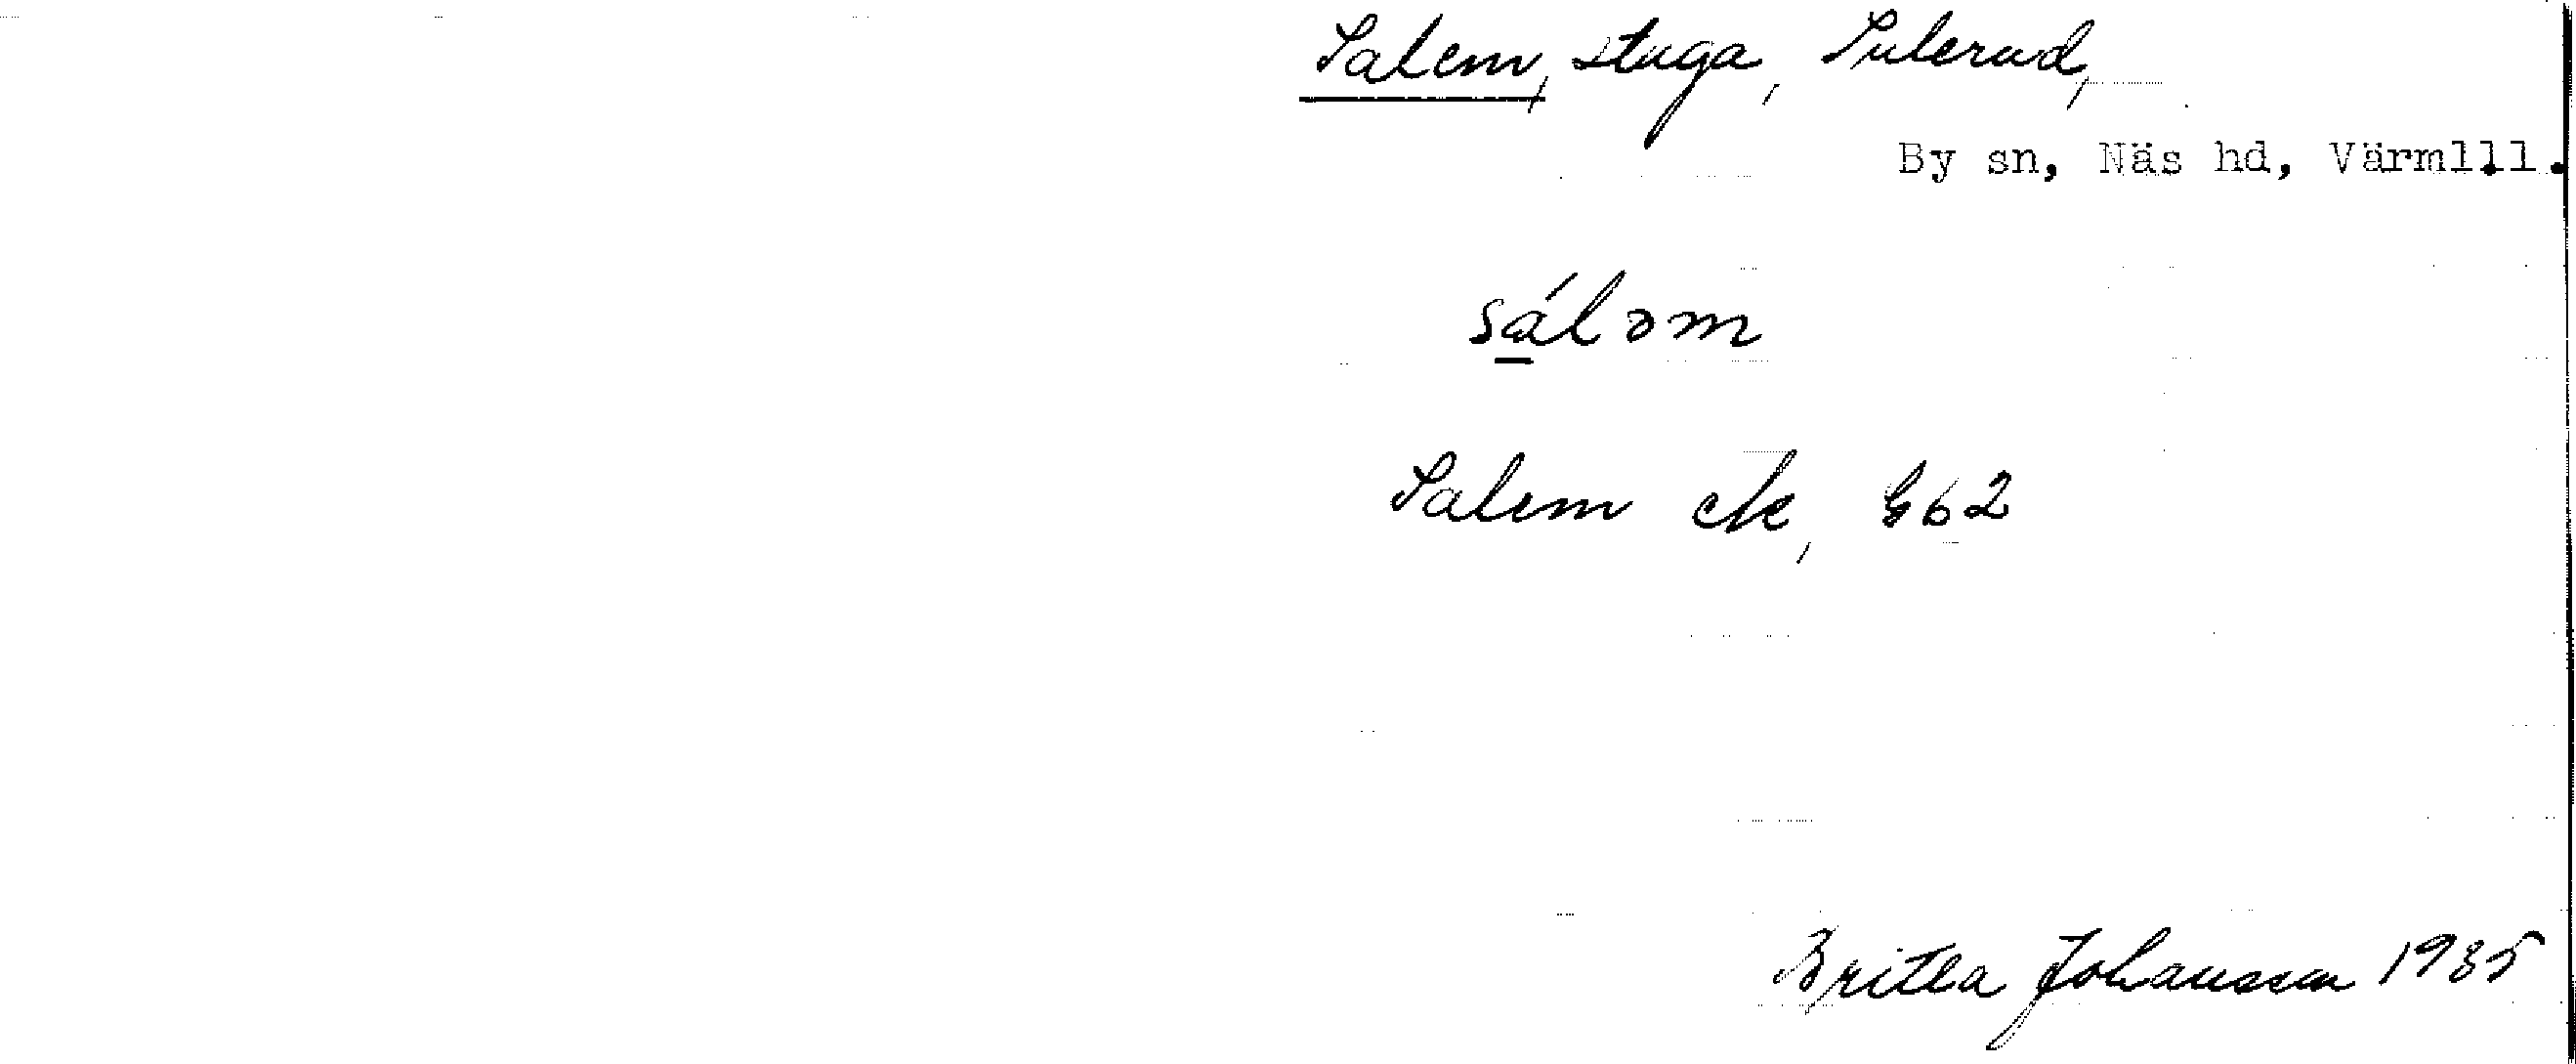 Salem, stuga, Sulerud,
By sn, Näs hd, Värml.l.
sáləm
Salem ek, G62
Britta Johansson 1935